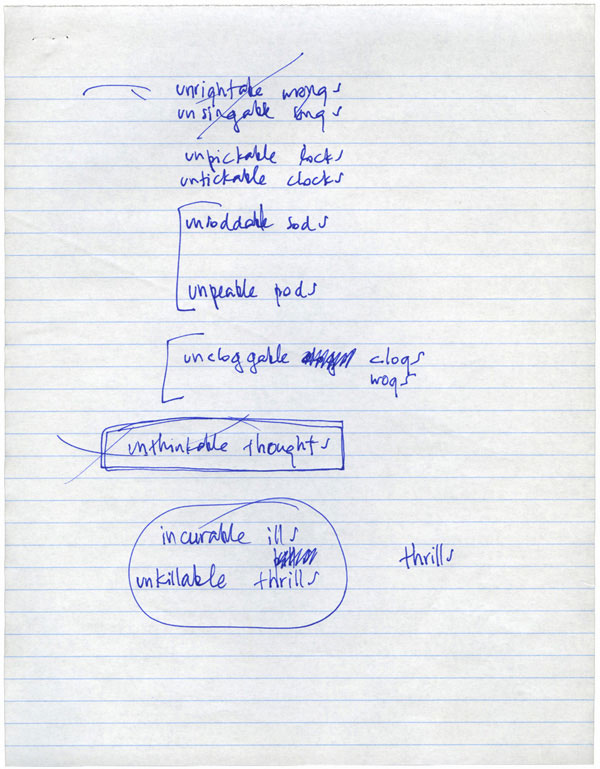 unrightable wrongs
unsingable songs
unpickable locks
untickable clocks
unsoddable sods
unpeable pods
uncloggable clogs
wogs
unthinkable thoughts
incurable ills
unkillable thrills thrills